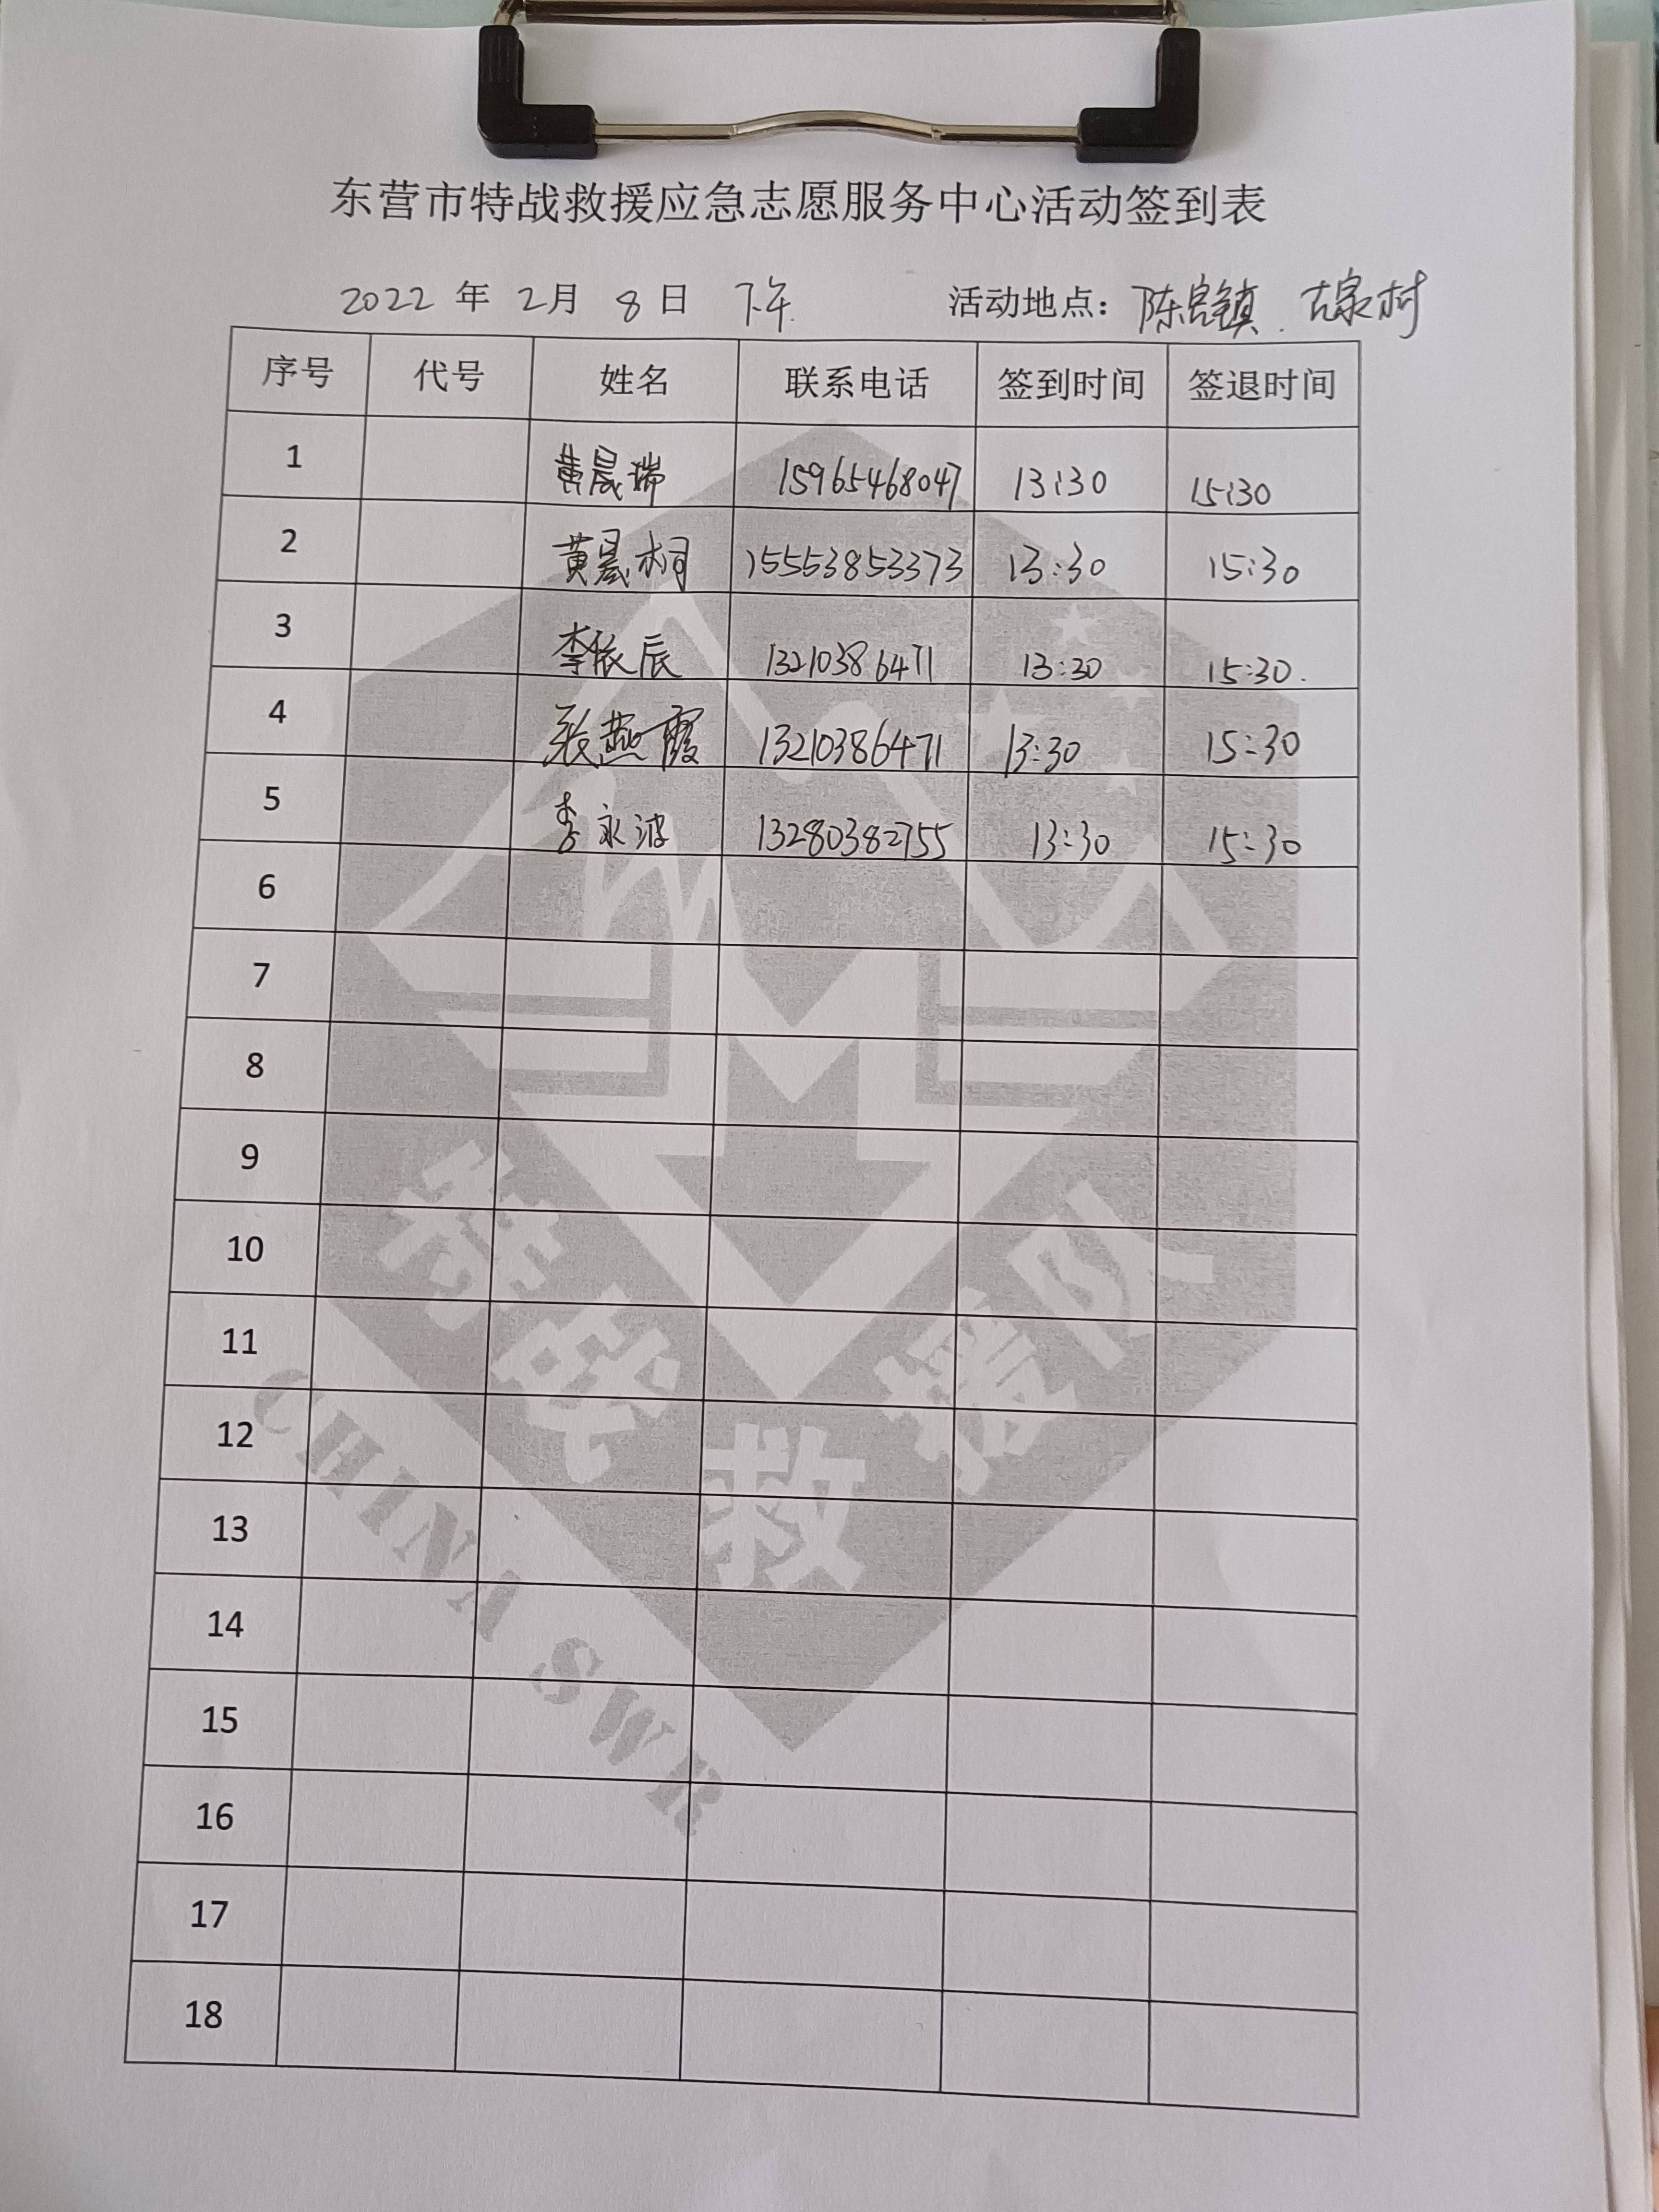 东营市特战救援应急志愿服务中心活动签到表
2022 年 2月 8日 下午 活动地点：陈官镇. 古家村
序号 代号 姓名 联系电话 签到时间 签退时间
1 黄晨瑞 15965468047 13:30 15:30
2 黄晨桐 15553853373 13:30 15:30
3 李依辰 13210386471 13:30 15:30.
4 张燕霞 13210386471 13:30 15:30
5 李永波 13280382755 13:30 15:30
6
7
8
9
10
11
12
13
14
15
16
17
18
特战救援队
CHINA SWR